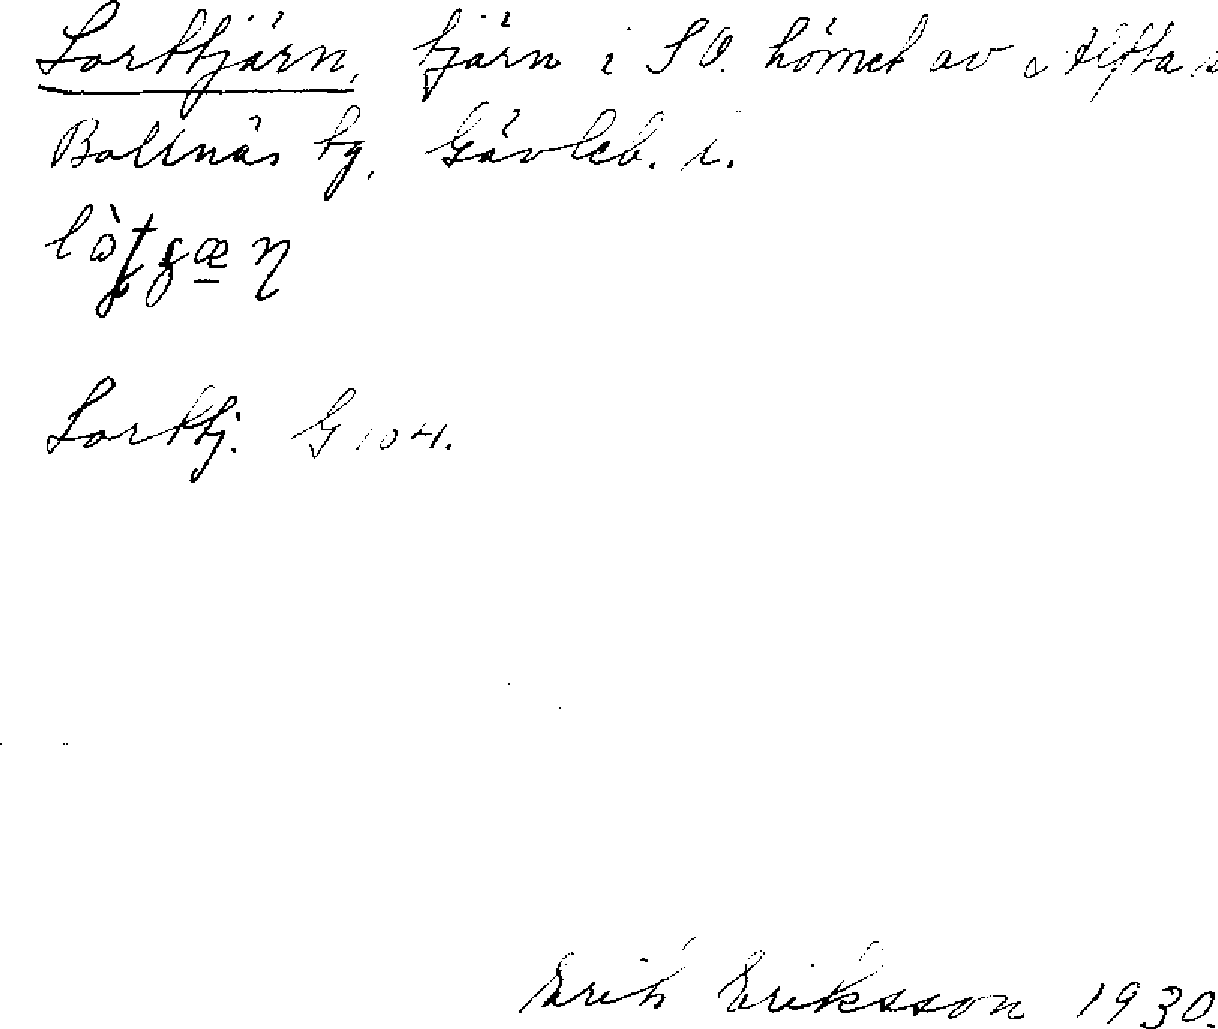 Lorttjärn, tjärn i SV. hörnet av Alfta s
Bollnäs tg, Gävleb. l.
Lorttj. G 104.
Erik Eriksson 1930.